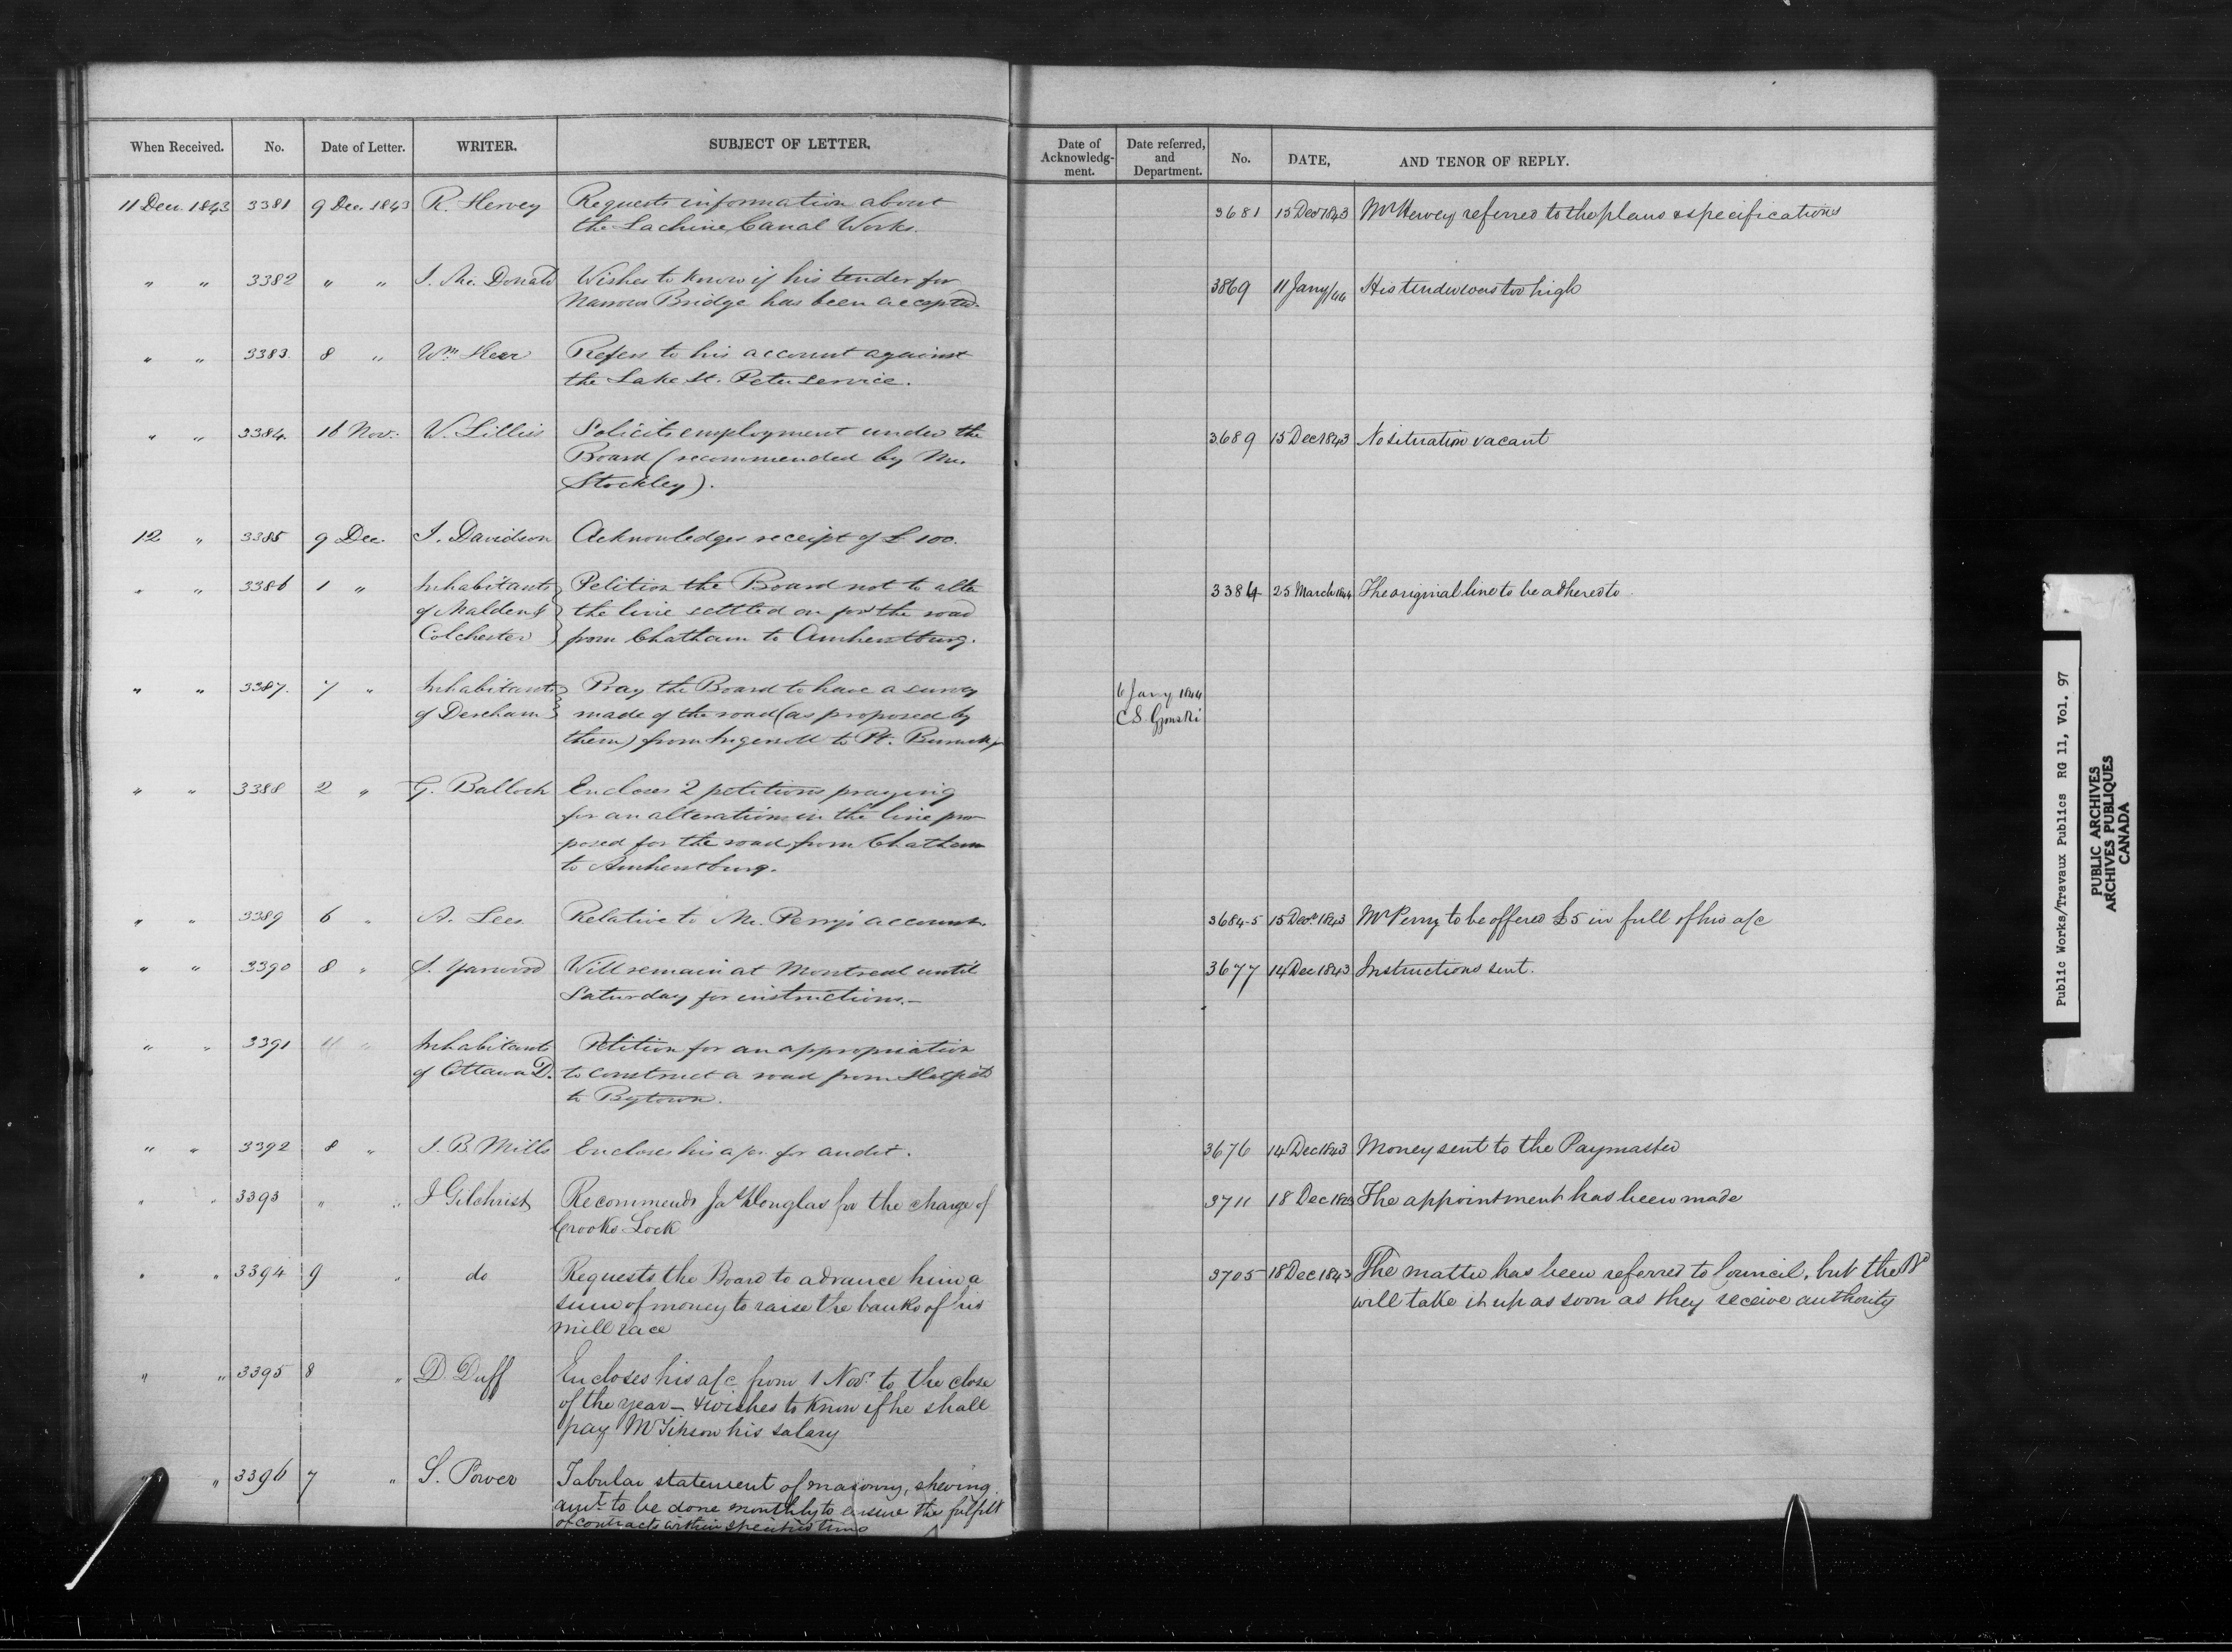 When Received. No. Date of Letter. WRITER. SUBJECT OF LETTER. Date of Acknowledg-ment. Date referred, and Department. No. DATE, AND TENOR OF REPLY.
11 Dec. 1843 3381 9 Dec. 1843 R. Hervey Requests information about 3681 15 Decr 1843 Mr Hervey referred to the plans & specifications
the Lachine Canal Works.
" " 3382 " " J. Mc. Donald Wishes to know if his tender for 3869 11 Jany/44 His tender was too high
Narrows Bridge has been accepted.
" " 3383. 8 " Wm. Refers to his account against
the Lake St. Peter service.
" " 3384. 16 Nov. W. Lillies Solicits employment under the 3689 15 Dec 1843 No situation vacant
Board (recommended by Mr.
Stockley).
12 " 3385 9 Dec. J. Davidson Acknowledges receipt of £ 100.
" " 3386 1 " Inhabitants Petition the Board not to alter 3384 25 March 1844 The original line to be adhered to
of Malden & the line settled on for the road
Colchester from Chatham to Amherstburg.
" " 3387. 7 " Inhabitants Pray the Board to have a survey 6 Jany 1844
of Dereham made of the road (as proposed by C S. Gzowski
them) from Ingersoll to Pt. Burwell
" " 3388 2 " G. Balloch Encloses 2 petitions praying
for an alteration in the line pro-
posed for the road from Chatham
to Amherstburg.
" " 3389 6 " A. Lees Relative to Mr. Perry's account. 3684-5 15 Decr. 1843 Mr Perry to be offered £5 in full of his a/c
" " 3390 8 " S. Yarwood Will remain at Montreal until 3677 14 Dec 1843 Instructions sent.
Saturday for instructions.-
" " 3391 " Inhabitants Petition for an appropriation
of Ottawa D. to construct a road from
to Bytown.
" " 3392 8 " J. B. Mills Encloses his a/c. for audit. 3676 14 Dec 1843 Money sent to the Paymaster
" " 3393 " " J Gilchrist Recommends Jas Douglas for the charge of 3711 18 Dec 1843 The appointment has been made
Crooks Lock
" " 3394 9 " do Requests the Board to advance him a 3705 18 Dec 1843 The matter has been referred to Council, but the Bd
sum of money to raise the banks of his will take it up as soon as they receive authority
mill race
" " 3395 8 " D. Duff Encloses his a/c from 1 Novr to the close
of the year - & wishes to know if he shall
pay Mr his salary
" 3396 7 " S. Power Tabular statement of masonry, shewing
amt. to be done monthly to ensure the fulfilt
of contracts within specified time
Public Works/Travaux Publics RG 11, Vol. 97
PUBLIC ARCHIVES
ARCHIVES PUBLIQUES
CANADA